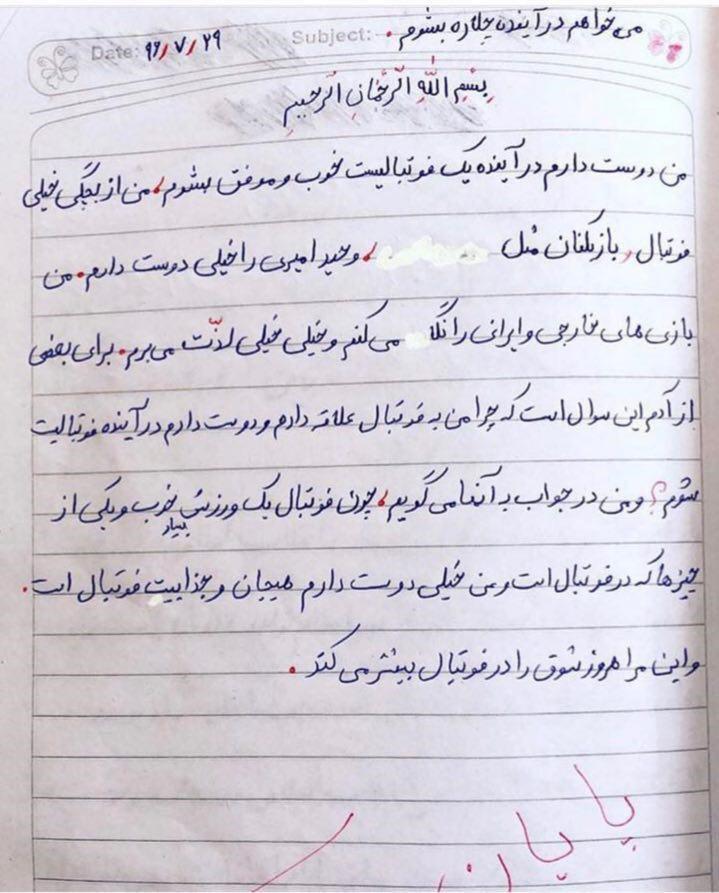 می خواهم در آینده چکاره بشوم.
Subject:
Date: ۹۶/۷/۲۹
بِسْمِ اللّهِ الرَّحْمانِ الرَّحیمِ
من دوست دارم در آینده یک فوتبالیست خوب و موفق بشوم، من از بچگی خیلی
فوتبال، بازیکنان مثل ، وحید امیری را خیلی دوست دارم. من
بازی های خارجی و ایرانی را نگاه می کنم و خیلی خیلی لذّت می برم. برای بعضی
از آدم این سوال است که چرا من به فوتبال علاقه دارم و دوست دارم در آینده فوتبالیت
بشوم؟ و من در جواب به آنها می گویم، چون فوتبال یک ورزش خوب و یکی از
بسیار
چیزها که در فوتبال است و من خیلی دوست دارم هیجان و جذابیت فوتبال است.
و این مرا هروز شوق را در فوتبال بیشتر می کند.
پایان